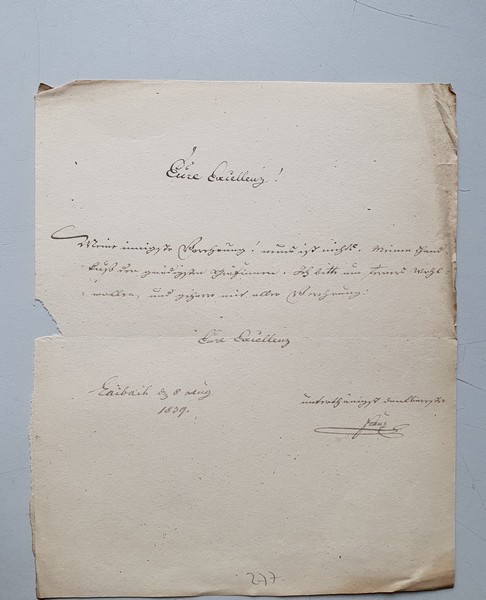 Eure Excellenz!
Meine innigste Verehrung! neues ist nichts. Meinen Hand-
kuß den gnädigsten Gräfinnen. Ich bitte um ferneres Wohl-
wollen, und geharre mit aller Verehrung.
Eure Excellenz
Laibach d 8 Aug
1839.
unterthänigst dankbarster
277